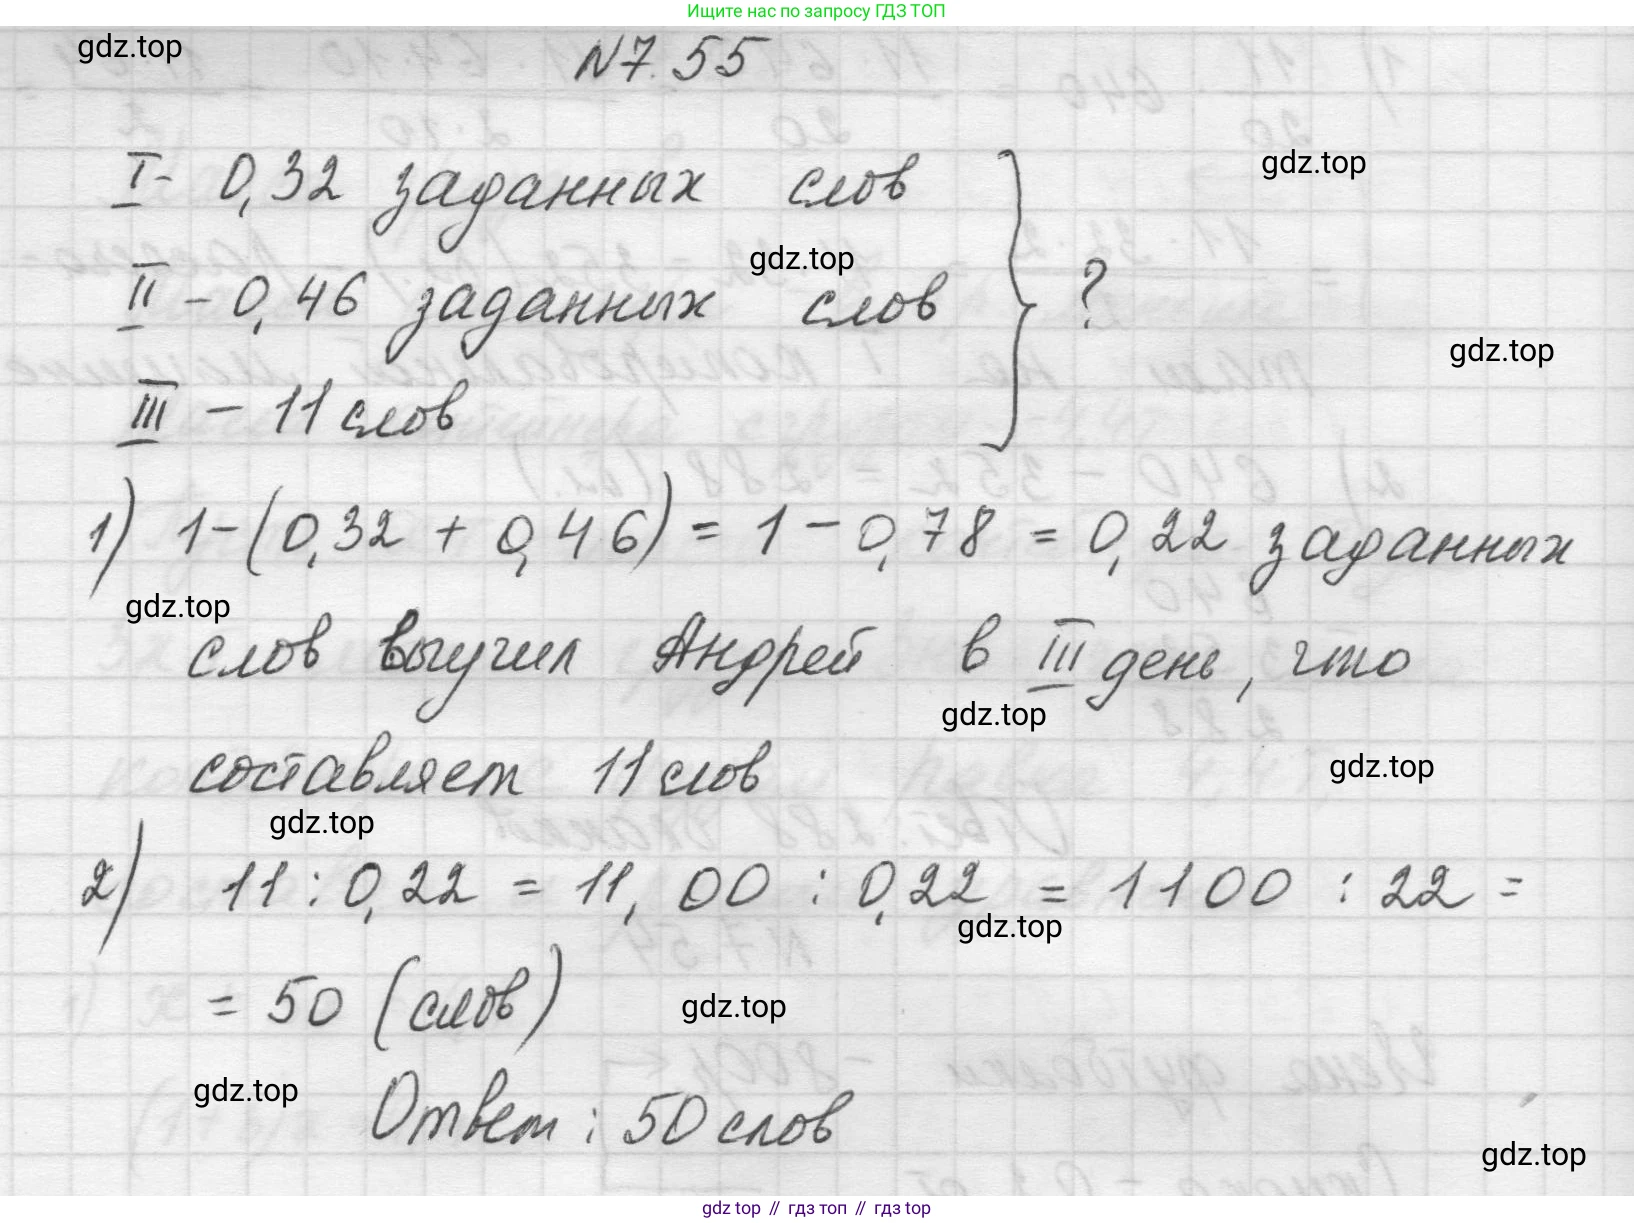 Ищите нас по запросу ГДЗ ТОП
gdz.top
N7.55
I - 0,32 заданных слов
gdz.top
gdz.top
II - 0,46 заданных слов
?
gdz.top
III - 11 слов
1) 1-(0,32 + 0,46) = 1 - 0,78 = 0,22 заданных
gdz.top
слов выучил Андрей в III день, что
gdz.top
составляет 11 слов
gdz.top
gdz.top
2) 11 : 0,22 = 11,00 : 0,22 = 1100 : 22 =
gdz.top
= 50 (слов)
gdz.top
gdz.top
Ответ: 50 слов
gdz.top
gdz top // гдз топ // гдз top